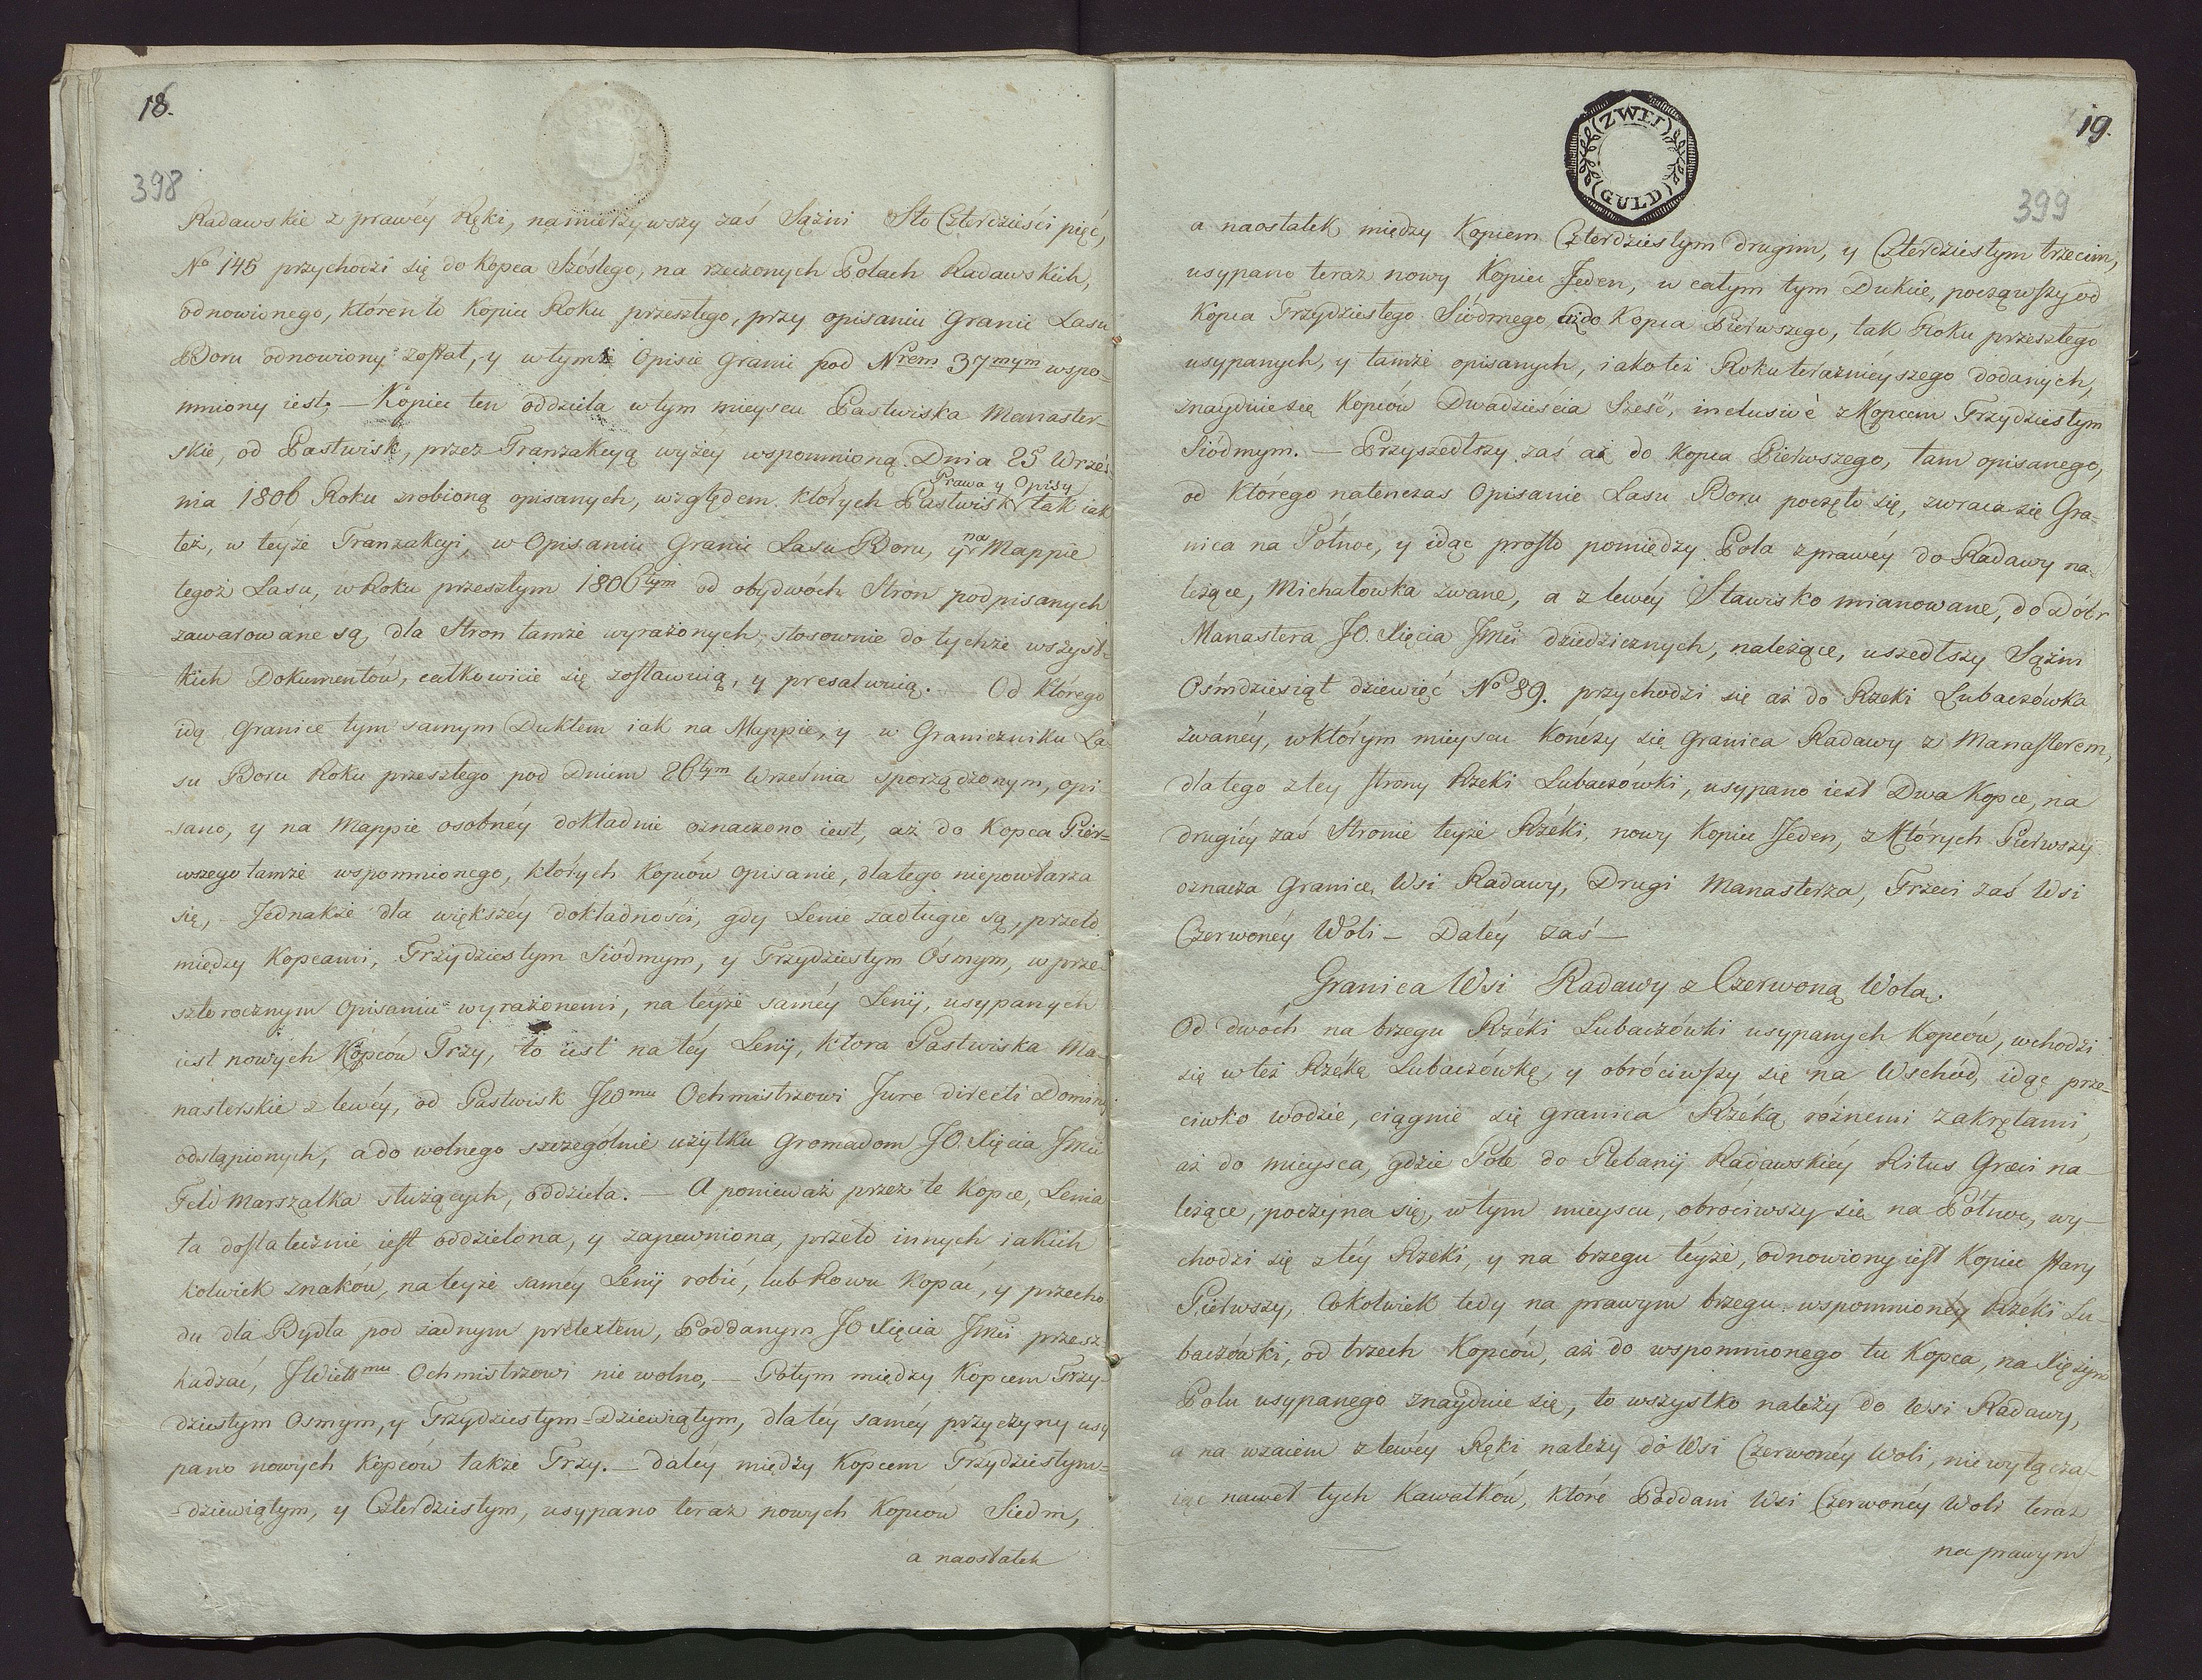 18.
398
Radawskie z prawéy Ręki, namierzywszy zaś Sążni Sto Czterdzieści pięć,
No 145 przychodzi się do Kopca Szóstego, na rzeczonych Polach Radawskich,
odnowionego, któren to Kopiec Roku przeszłego, przy opisaniu Granic Lasu
Boru odnowiony został, y w tymże Opisie Granic pod Nrem 37mym wspo-
mniony iest, — Kopiec ten oddziela w tym mieyscu Pastwiska Manaster-
skie, od Pastwisk, przez Tranzakcyą wyżéy wspomnioną Dnia 25 Wrześ-
nia 1806 Roku zrobioną opisanych, względem których Pastwisk Prawa y Opisy tak iak
też, w teyże Tranzakcyi, w Opisaniu Granic Lasu Boru, y na Mappie
tegoż Lasu, w Roku przeszłym 1806tym od obydwóch Stron podpisanych
zawarowane są, dla Stron tamże wyrażonych, stosownie do tychże wszyst-
kich Dokumentów, całkowicie się zostawuią, y presalwuią. — Od którego
idą Granice tym samym Duktem iak na Mappie, y w Graniczniku La-
su Boru Roku przeszłego pod Dniem 26tym Września sporządzonym, opi-
sano, y na Mappie osobnéy dokładnie oznaczono iest, aż do Kopca Pier-
wszego tamże wspomnionego, których Kopców opisanie, dlatego niepowtarza
się, — Jednakże dla większéy dokładności, gdy Lenie zadługie są, przeto
między Kopcami, Trzydziestym Siódmym, y Trzydziestym Ósmym, w prze-
szłorocznym Opisaniu wyrażonemi, na téyże saméy Lenij, usypanych
iest nowych Kopców Trzy, to iest na téy Lenij, która Pastwiska Ma-
nasterskie z lewéy, od Pastwisk JWmu Ochmistrzowi Jure directi Dominij
odstąpionych, a do wolnego szczególnie użytku Gromadom JO. Xięcia Jmci
Feld Marszałka służących, oddziela. — A ponieważ przez te Kopce, Lenia
ta dostatecznie iest oddzielona, y zapewniona, przeto innych iakich
kolwiek znaków, na teyże saméy Lenij robić, lub Rowu kopać, y przecho-
du dla Bydła pod żadnym pretextem, Poddanym JO Xięcia Jmci przesz-
kadzać, JWielmu Ochmistrzowi nie wolno, — Potym między Kopcem Trzy-
dziestym Osmym, y Trzydziestym-Dziewiątym, dla téy saméy przyczyny usy-
pano nowych Kopców także Trzy. — Daléy między Kopcem Trzydziestym-
-dziewiątym, y Czterdziestym, usypano teraz nowych Kopców Siedm,
a naostatek
ZWEI
GULD
19.
399
a naostatek między Kopcem Czterdziestym drugim, y Czterdziestym trzecim,
usypano teraz nowy Kopiec Jeden, w całym tym Dukcie, począwszy od
Kopca Trzydziestego Siódmego aż do Kopca Pierwszego, tak Roku przeszłego
usypanych, y tamże opisanych, iako też Roku teraznieyszego dodanych,
znayduie się Kopców Dwadzieścia Sześć, inclusivè z Kopcem Trzydziestym
Siódmym. — Przyszedłszy zaś aż do Kopca Pierwszego, tam opisanego,
od którego natenczas Opisanie Lasu Boru poczęło się, zwraca się Gra-
nica na Północ, y idąc prosto pomiędzy Pola z prawéy do Radawy na-
leżące, Michałowka zwane, a z lewéy Stawisko mianowane, do Dóbr
Manastera JO. Xięcia Jmci dziedzicznych, należące, uszedłszy Sążni
Ośmdziesiąt dziewięć No 89. przychodzi się aż do Rzeki Lubaczówka
zwanéy, w którym mieyscu kończy się Granica Radawy z Manasterem,
dlatego z tey strony Rzeki Lubaczówki, usypano iest Dwa Kopce, na
drugiéy zaś Stronie teyże Rzéki, nowy Kopiec Jeden, z których Pierwszy
oznacza Granice, Wsi Radawy, Drugi Manasterza, Trzeci zaś Wsi
Czerwonéy Woli — Daléy zaś —
Granica Wsi Radawy z Czerwoną Wolą.
Od dwóch na brzegu Rzéki Lubaczówki usypanych Kopców, wchodzi
się w też Rzékę Lubaczówkę, y obróciwszy się na Wschód, idąc prze-
ciwko wodzie, ciągnie się Granica Rzéką różnemi zakrętami,
aż do mieysca, gdzie Pole do Plebanij Radawskiéy Ritus Græci na-
leżące, poczyna się, w tym mieyscu, obrociwszy się na Północ, wy-
chodzi się z téy Rzeki, y na brzegu téyże, odnowiony iest Kopiec stary
Pierwszy, Cokolwiek tedy na prawym brzegu wspomnionéy Rzéki Lu-
baczówki, od trzech Kopców, aż do wspomnionego tu Kopca, na Xiężym
Polu usypanego znayduie się, to wszystko należy do Wsi Radawy,
a na wzaiem z lewéy Ręki należy do Wsi Czerwonéy Woli, nie wyłącza-
iąc nawet tych Kawałków, które Poddani Wsi Czerwonéy Woli teraz
na prawym